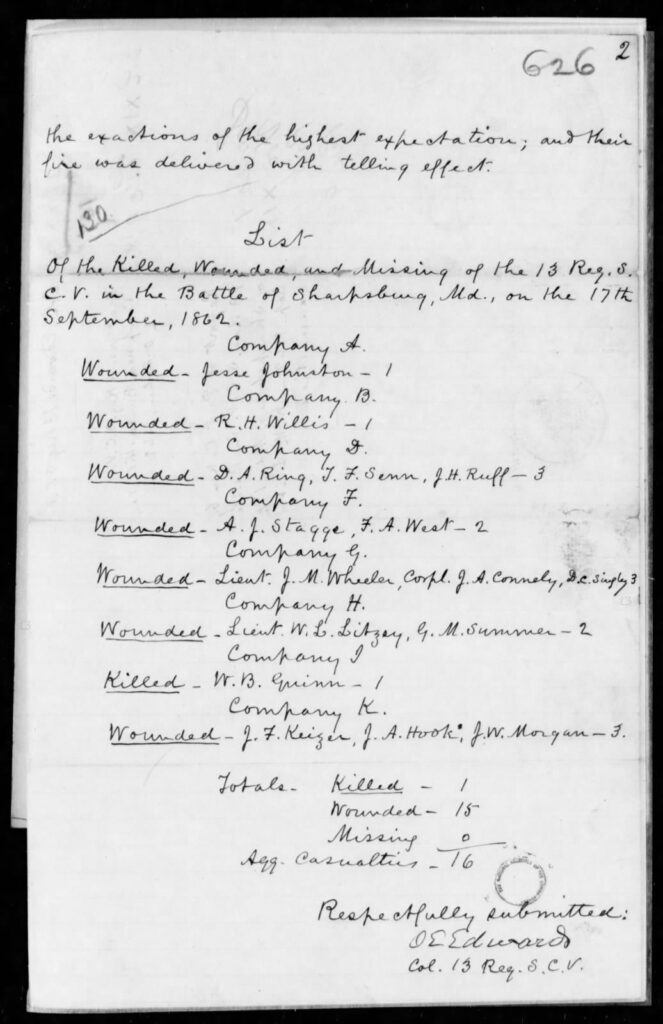 626 2
the exactions of the highest expectation; and their
fire was delivered with telling effect.
130
List
Of the Killed, Wounded, and Missing of the 13 Reg. S.
C. V. in the Battle of Sharpsburg, Md., on the 17th
September, 1862.
Company A.
Wounded - Jesse Johnston - 1
Company B.
Wounded - R. H. Willis - 1
Company D.
Wounded - D. A. Ring, T. F. Senn, J. H. Ruff - 3
Company F.
Wounded - A. J. Stagge, F. A. West - 2
Company G.
Wounded - Lieut. J. M. Wheeler, Corpl. J. A. Connely, D. C. Singley 3
Company H.
Wounded - Lieut. W. L. Litzey, G. M. Summer - 2
Company I
Killed - W. B. Guinn - 1
Company K.
Wounded - J. F. Keizer, J. A. Hook, J. W. Morgan - 3.
Totals - Killed - 1
Wounded - 15
Missing 0
Agg. Casualties - 16
Respectfully submitted:
O E Edwards
Col. 13 Reg. S. C. V.